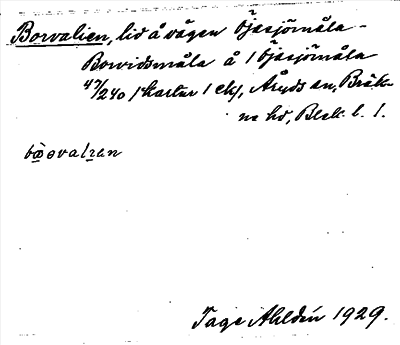 Borvalien, lid å vägen Öjasjömåla -
Borvidsmåla å 1 Öjasjömåla
47/240 1 kartur 1 ckf, Åryds sn, Bräk-
ne hd, Blek. l. 1.
Tage Ahldén 1929.